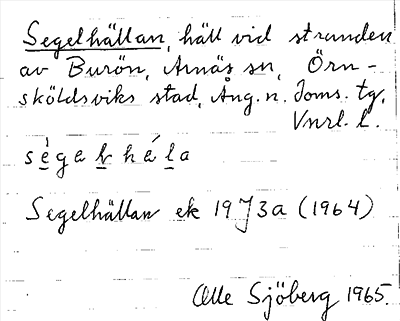 Segelhällan, häll vid stranden
av Burön, Arnäs sn, Örn-
sköldsviks stad, Ång. n. doms. tg,
Vnrl. l.
ségalhála
Segelhällan ek 19 J3a (1964)
Olle Sjöberg 1965.